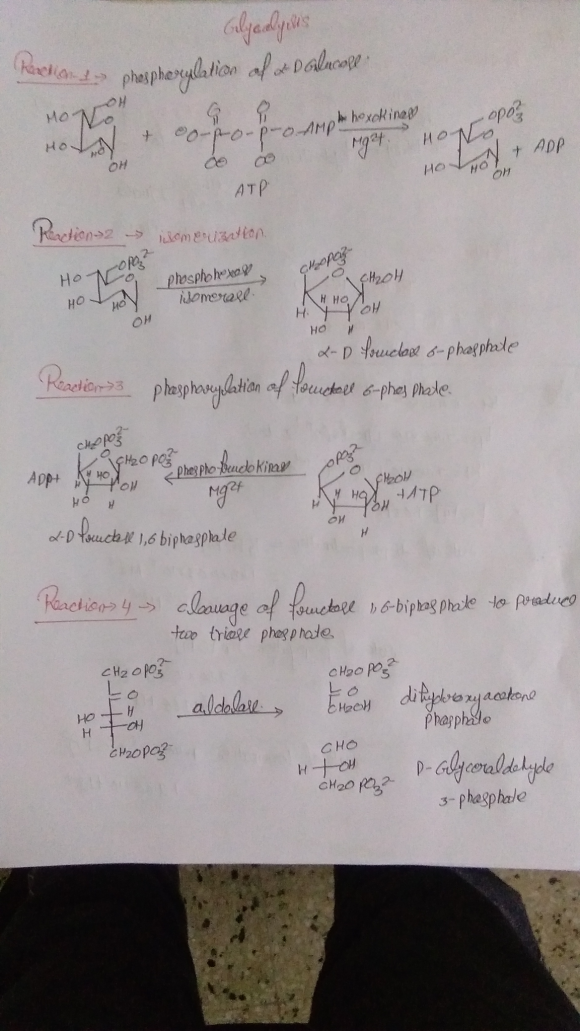 Glycolysis
Reaction-1 → phosphorylation of α-D Glucose.
HO OH O HO HO OH + ⊖O-P-O-P-O-AMP O O O⊖ O⊖ hexokinase Mg2+ HO OPO3 2- O HO HO OH + ADP
ATP
Reaction→2 → isomerization
HO OPO3 2- O HO HO OH phosphohexose isomerase. CH2OPO3 2- O CH2OH H HO H. OH HO H
α-D fructose 6-phosphate
Reaction→3 phosphorylation of fructose 6-phosphate.
ADP+ CH2OPO3 2- O CH2OPO3 2- H HO OH HO H phospho-fructokinase Mg2+ OPO3 2- O CH2OH H HO OH +ATP OH H
α-D fructose 1,6 biphosphate
Reaction→4 → cleavage of fructose 1,6-biphosphate to produce
two triose phosphate.
CH2OPO3 2-
O
HO H
H OH
CH2OPO3 2-
aldolase.
CH2OPO3 2-
O
CH2OH
dihydroxyacetone
phosphate
CHO
H OH
CH2OPO3 2-
D-Glyceraldehyde
3-phosphate